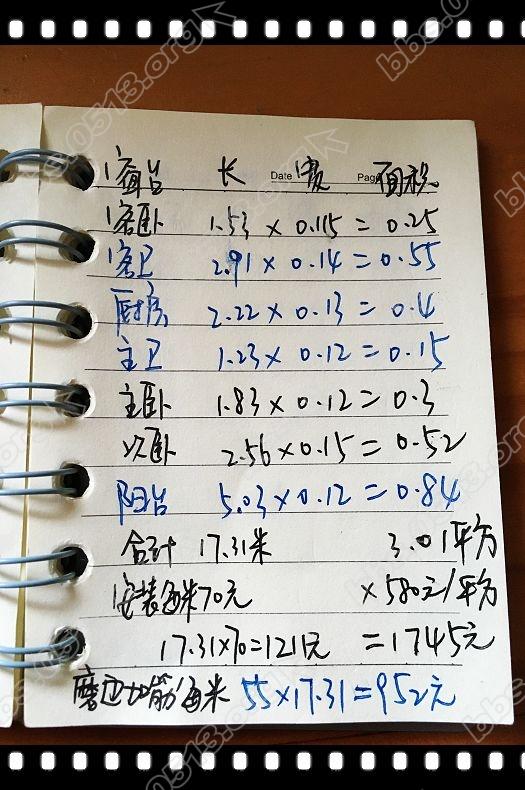 窗台 长 Date 宽 Page 面积
客卧 1.53 × 0.115 = 0.25
客卫 2.91 × 0.14 = 0.55
厨房 2.22 × 0.13 = 0.4
主卫 1.23 × 0.12 = 0.15
主卧 1.83 × 0.12 = 0.3
次卧 2.56 × 0.15 = 0.52
阳台 5.03 × 0.12 = 0.84
合计 17.31米 3.01平方
安装每米70元 ×580元/平方
17.31×70=1211元 =1745元
磨边加筋/每米 55×17.31=952元
bbs.0513.org